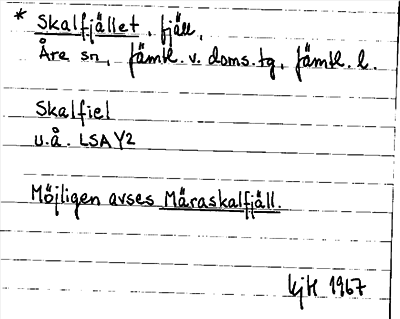 * Skalfjället, fjäll,
Åre sn, Jämtl. v. doms.tg, Jämtl. l.
Skalfiel
u.å. LSA Y2
Möjligen avses Märaskalfjäll.
1967